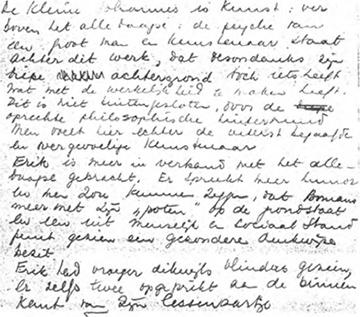 De Kleine Johannes is Kunst: ver
boven het alledaagse: de psyche van
een groot man en Kunstenaar staat
achter dit werk, dat desondanks zijn
diepe achtergrond toch iets heeft
wat met de werkelijkheid te maken heeft.
Dit is niet buitengesloten, door de
oprechte philosophische
Men voelt hier echter de uiterst begaafde
en Kunstenaar
Erik is meer in verband met het alle-
daagse gebracht. Er spreekt meer humor
en men zou kunnen zeggen, dat Bomans
meer met zijn "poten" op de grond staat
en een uit menselijk en sociaal stand
punt gezien een gezondere denkwijze
bezit
Erik had vroeger dikwijls vlinders gezien,
Er zelfs twee opgeprikt aan de binnen
kant van zijn